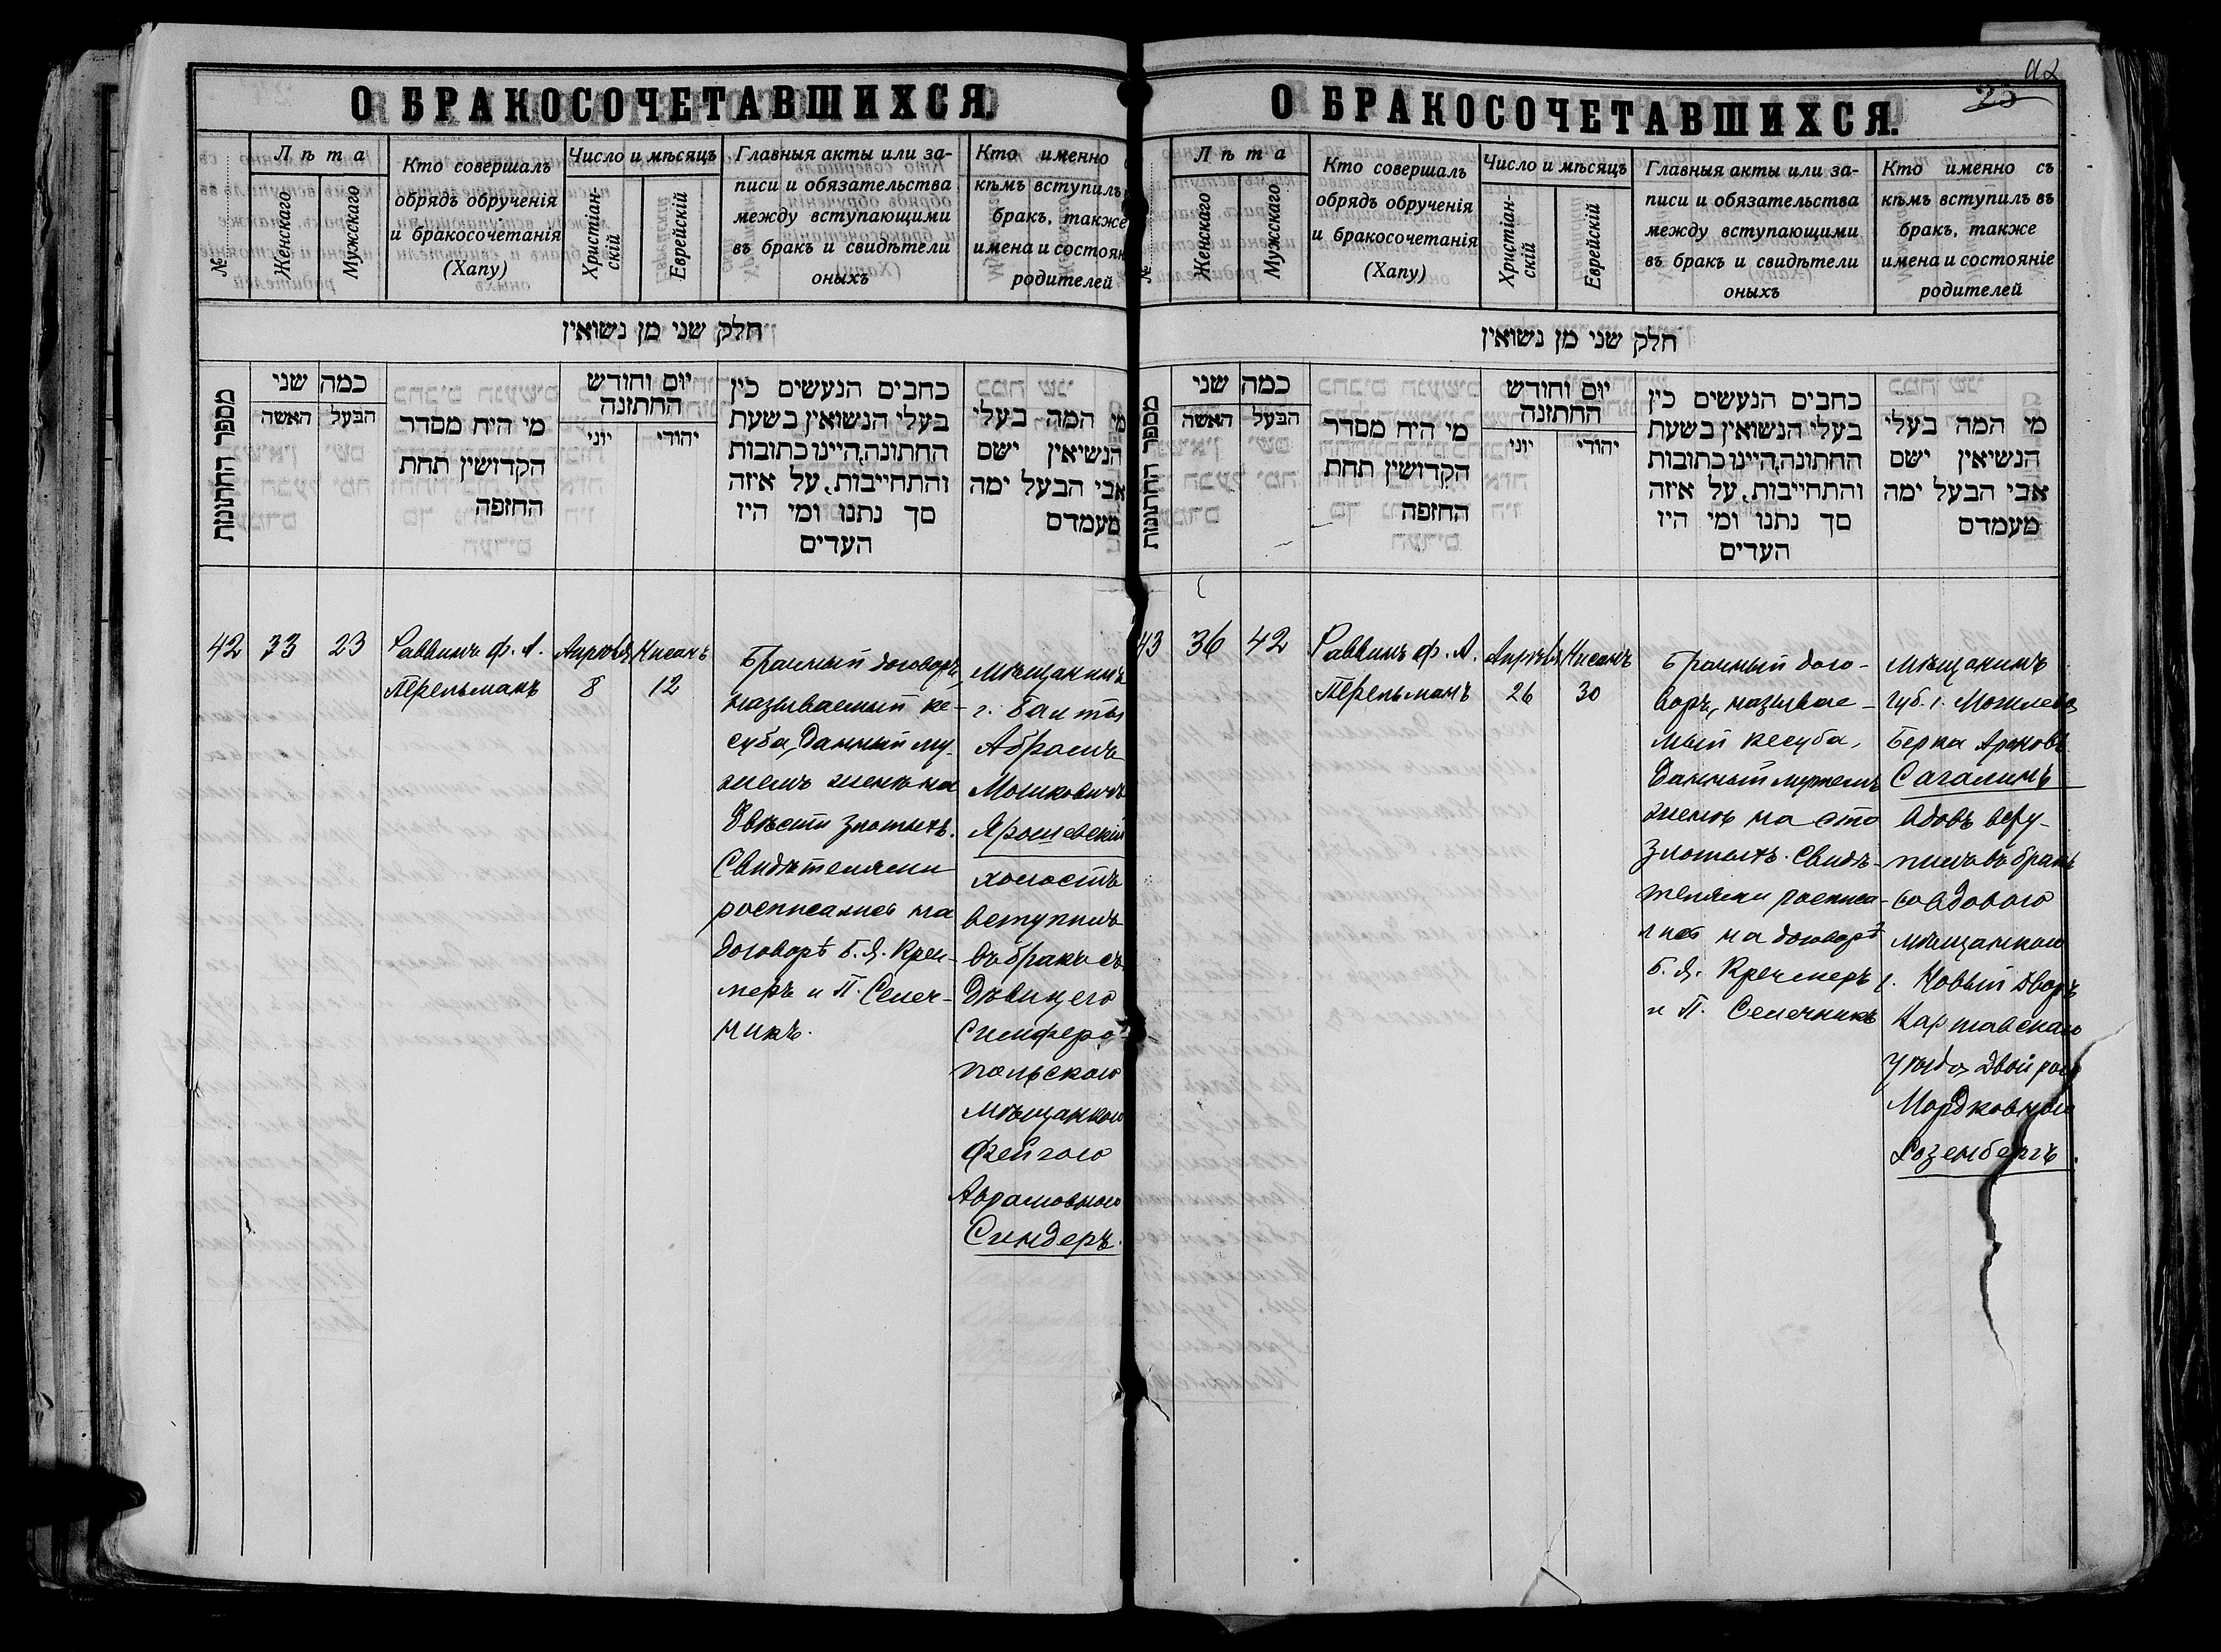 О БРАКОСОЧЕТАВШИХСЯ.
№
Лѣта
Женскаго
Мужскаго
Кто совершалъ
обрядъ обрученія
и бракосочетанія
(Хапу)
Число и мѣсяцъ
Христіан-
скій
Еврейскій
Главныя акты или за-
писи и обязательства
между вступающими
въ бракъ и свидѣтели
оныхъ
Кто именно
кѣмъ вступилъ
бракъ, также
имена и состоян
родителей
חלק שני מן נשואין
מספר החתונות
כמה שני
האשה
הבעל
מי היה מסדר
הקדושין תחת
החופה
יום וחודש
החתונה
יוני
יהודי
כתבים הנעשים בין
בעלי הנשואין בשעת
החתונה, היינו כתובות
והתחייבות, על איזה
סך נתנו ומי היו
העדים
מי המה בעלי
הנשיאין ישם
אבי הבעל ימה
מעמדם
42
33
23
Раввинъ Ф. А.
Перельманъ
Апрѣля
8
Нисанъ
12
Брачный договоръ,
называемый ке-
суба, данный му-
жемъ женѣ на
двѣсти злотыхъ.
Свидѣтелями
росписались на
договорѣ Б. Я. Креч-
меръ и П. Селеч-
никъ.
Мѣщанинъ
г. Балты
Абрамъ
Мошковичъ
Ярошевскій
холостъ
вступилъ
въ бракъ съ
дѣвицею
Симферо-
польскою
мѣщанкою
Фейгою
Абрамовною
Синдеръ.
О БРАКОСОЧЕТАВШИХСЯ.
92
25
№
Лѣта
Женскаго
Мужскаго
Кто совершалъ
обрядъ обрученія
и бракосочетанія
(Хапу)
Число и мѣсяцъ
Христіан-
скій
Еврейскій
Главныя акты или за-
писи и обязательства
между вступающими
въ бракъ и свидѣтели
оныхъ
Кто именно съ
кѣмъ вступилъ въ
бракъ, также
имена и состояніе
родителей
חלק שני מן נשואין
מספר החתונות
כמה שני
האשה
הבעל
מי היה מסדר
הקדושין תחת
החופה
יום וחודש
החתונה
יוני
יהודי
כתבים הנעשים בין
בעלי הנשואין בשעת
החתונה, היינו כתובות
והתחייבות, על איזה
סך נתנו ומי היו
העדים
מי המה בעלי
הנשיאין ישם
אבי הבעל ימה
מעמדם
43
36
42
Раввинъ Ф. А.
Перельманъ
Апрѣля
26
Нисанъ
30
Брачный дого-
воръ, называе-
мый кесуба,
данный мужемъ
женѣ на сто
злотыхъ. Свидѣ-
телями росписа-
лись на договорѣ
Б. Я. Кречмеръ
и П. Селечникъ
Мѣщанинъ
губ. г. Могилева
Берка Ароновъ
Сагалинъ
вдовъ всту-
пилъ въ бракъ
со вдовою
мѣщанкою
г. Новый Дворъ
Варшавскаго
уѣзда Двойрою
Мордковною
Розенбергъ.